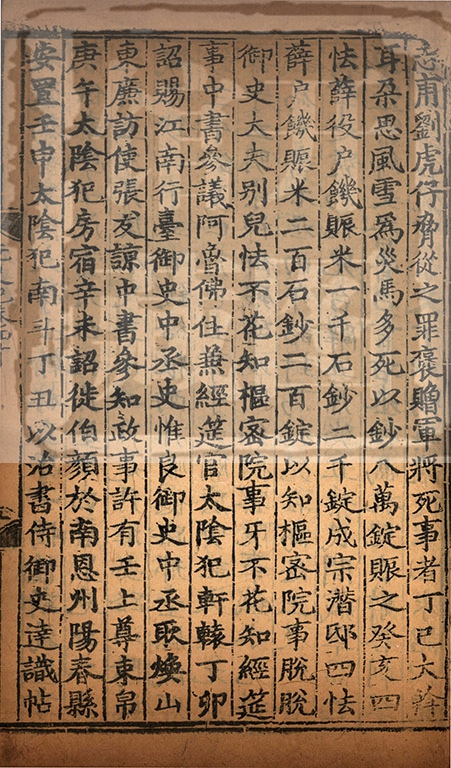 志甫劉虎仔脅從之罪褒贈軍將死事者丁巳大斡
耳朵思風雪爲災馬多死以鈔八萬錠賑之癸亥四
怯薛役户饑賑米一千石鈔二千錠成宗潛邸四怯
薛户饑賑米二百石鈔二百錠以知樞宻院事脫脫
御史大夫別兒怯不花知樞宻院事牙不花知經筵
事中書參議阿魯佛住兼經筵官太陰犯軒轅丁卯
詔賜江南行臺御史中丞史惟良御史中丞耿煥山
東廉訪使張友諒中書參知政事許有壬上尊束帛
庚午太陰犯房宿辛未詔徙伯顏於南恩州陽春縣
安置壬申太陰犯南斗丁丑以治書侍御史達識帖